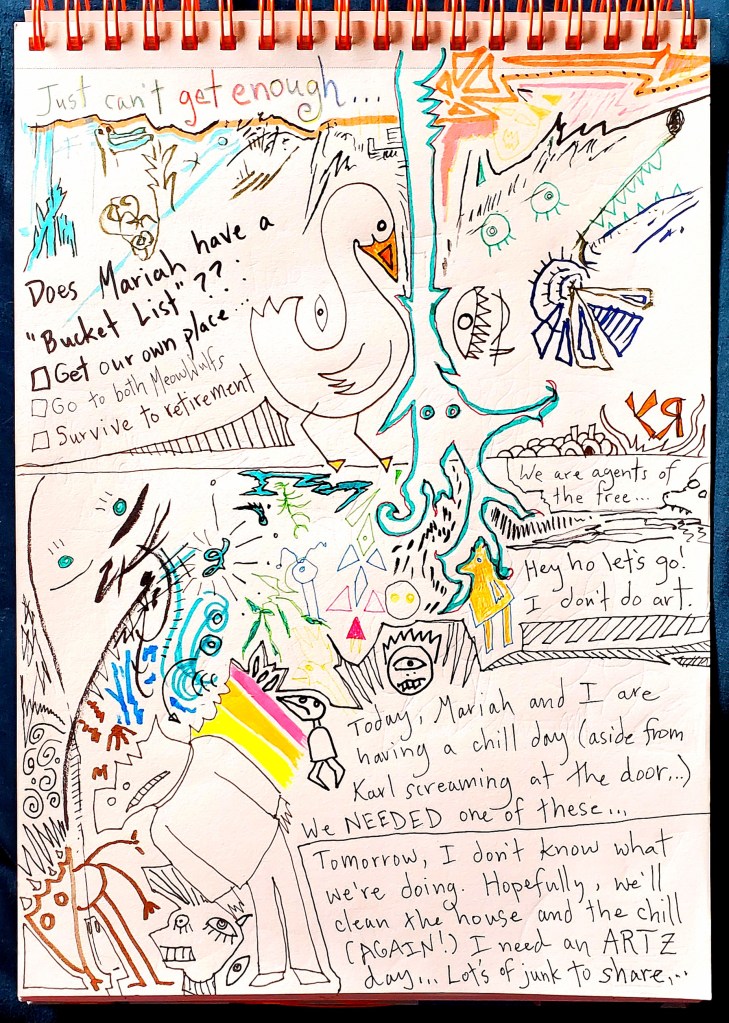 Just can't get enough...
Does Mariah have a
"Bucket List"??
Get our own place...
Go to both MeowWulfs
Survive to retirement
We are agents of
the tree...
Hey ho let's go!
I don't do art.
Today, Mariah and I are
having a chill day (aside from
Karl screaming at the door...)
We NEEDED one of these...
Tomorrow, I don't know what
we're doing. Hopefully, we'll
clean the house and the chill
(AGAIN!) I need an ARTZ
day... Lot's of junk to share...